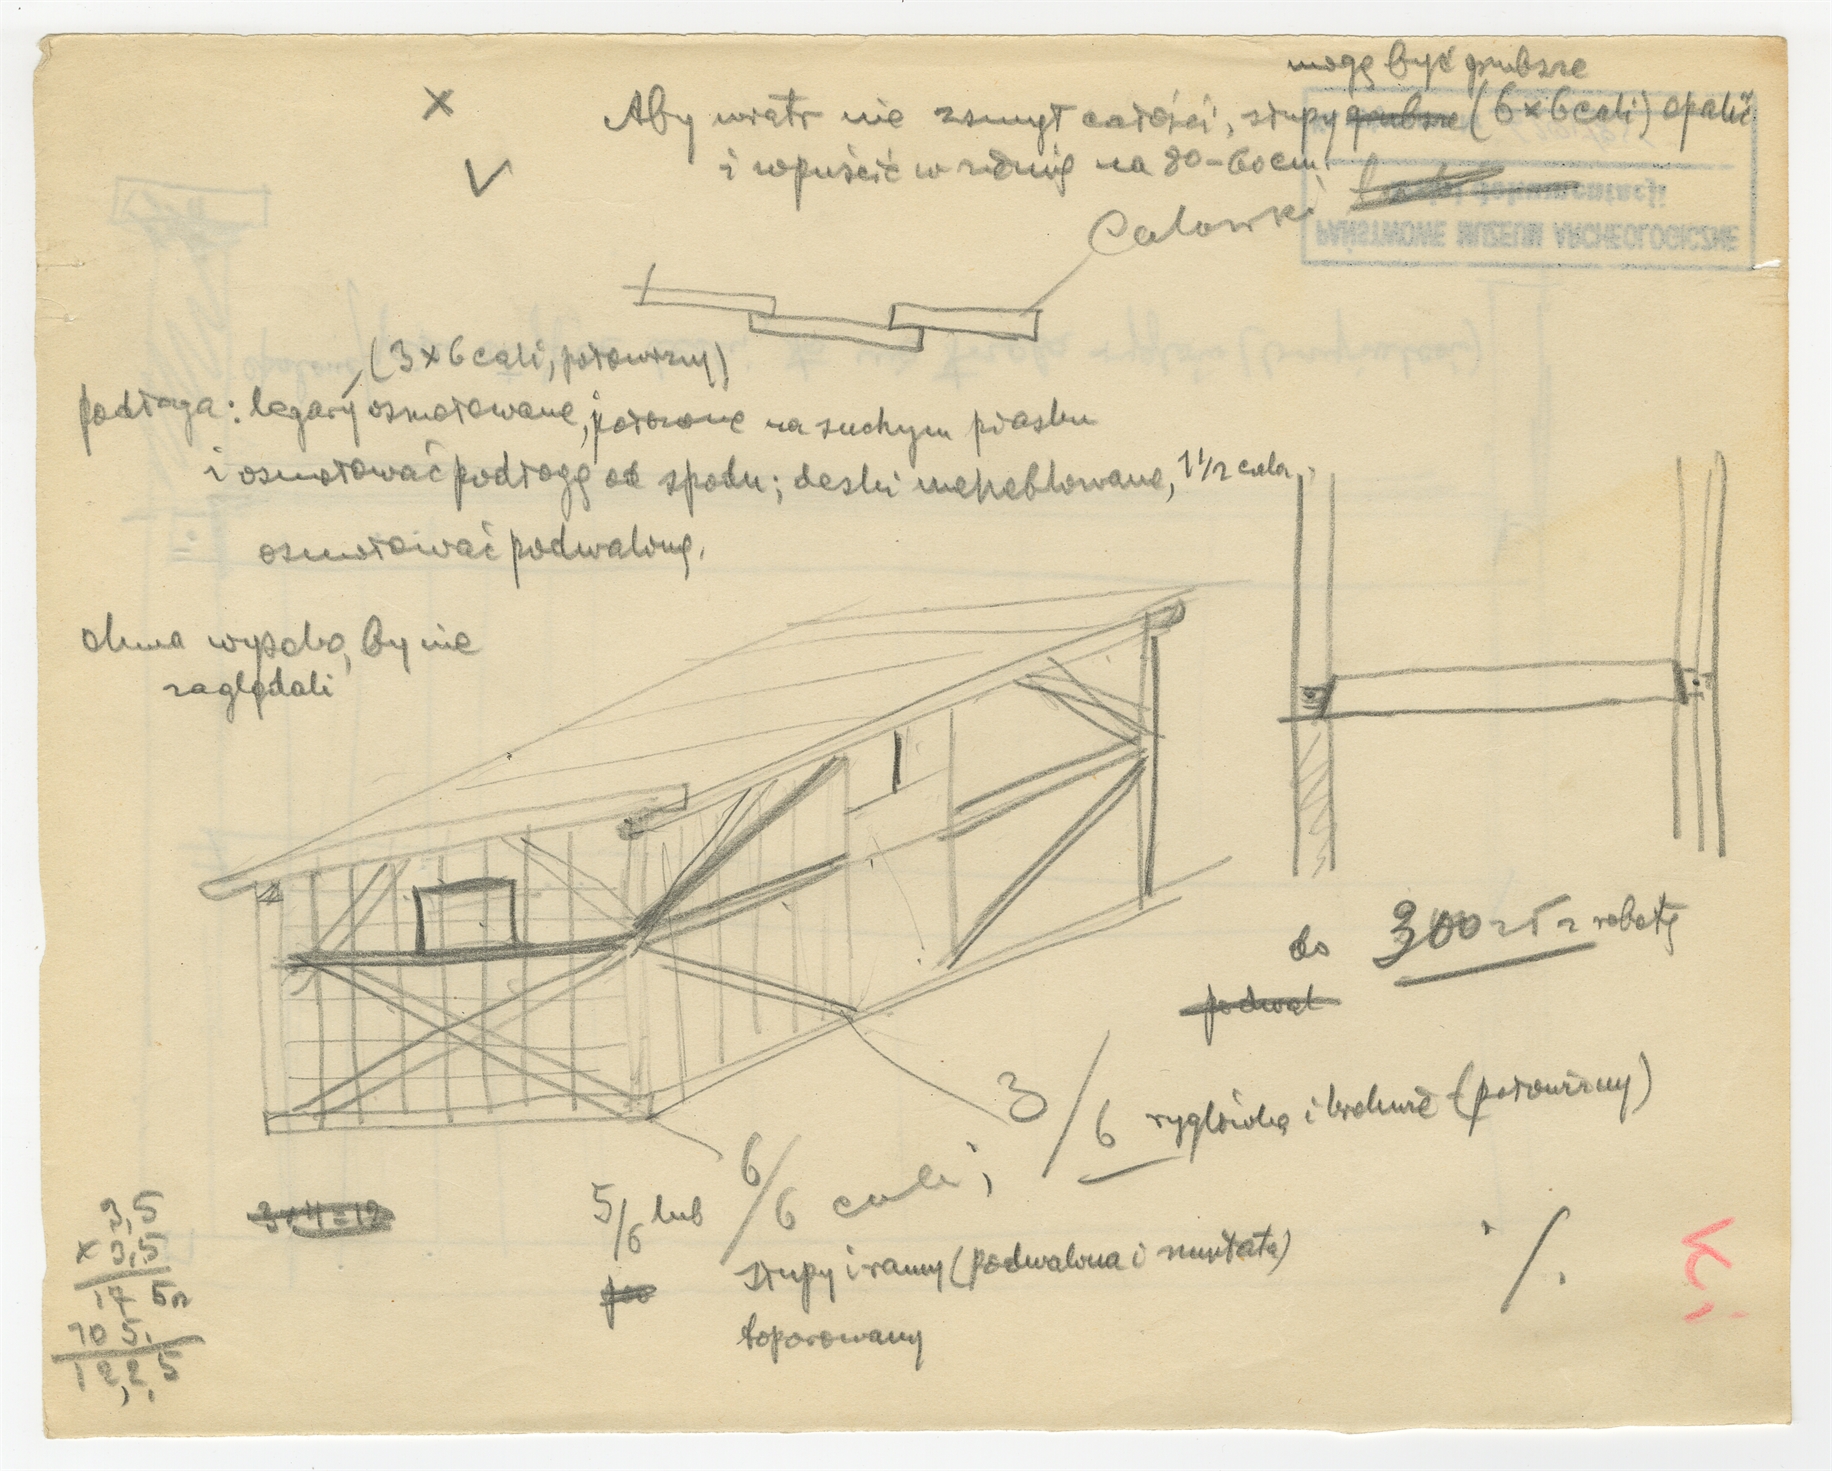 mogą być grubsze
x Aby wiatr nie zsunął całości, słupy grubsze (6x6 cali) opalić
V i wpuścić w ziemię na 80-60 cm
Calowki
(3 x 6 cali, połowizny)
podłoga: legary osmołowane, położone na suchym piasku
i osmołować podłogę od spodu; deski nieheblowane, 1 1/2 cala.
osmołować podwalinę.
okna wysoko, by nie
zaglądali
do 300 zł z robotą
podwal
3/6 ryglówka i krokwie (połowizny)
5/6 lub 6/6 cali;
słupy i ramy (podwalina i murłata)
toporowany
3x4=12
3,5
x 3,5
17 5
10 5
12,2,5
PAŃSTWOWE MUZEUM ARCHEOLOGICZNE
dokumentacji